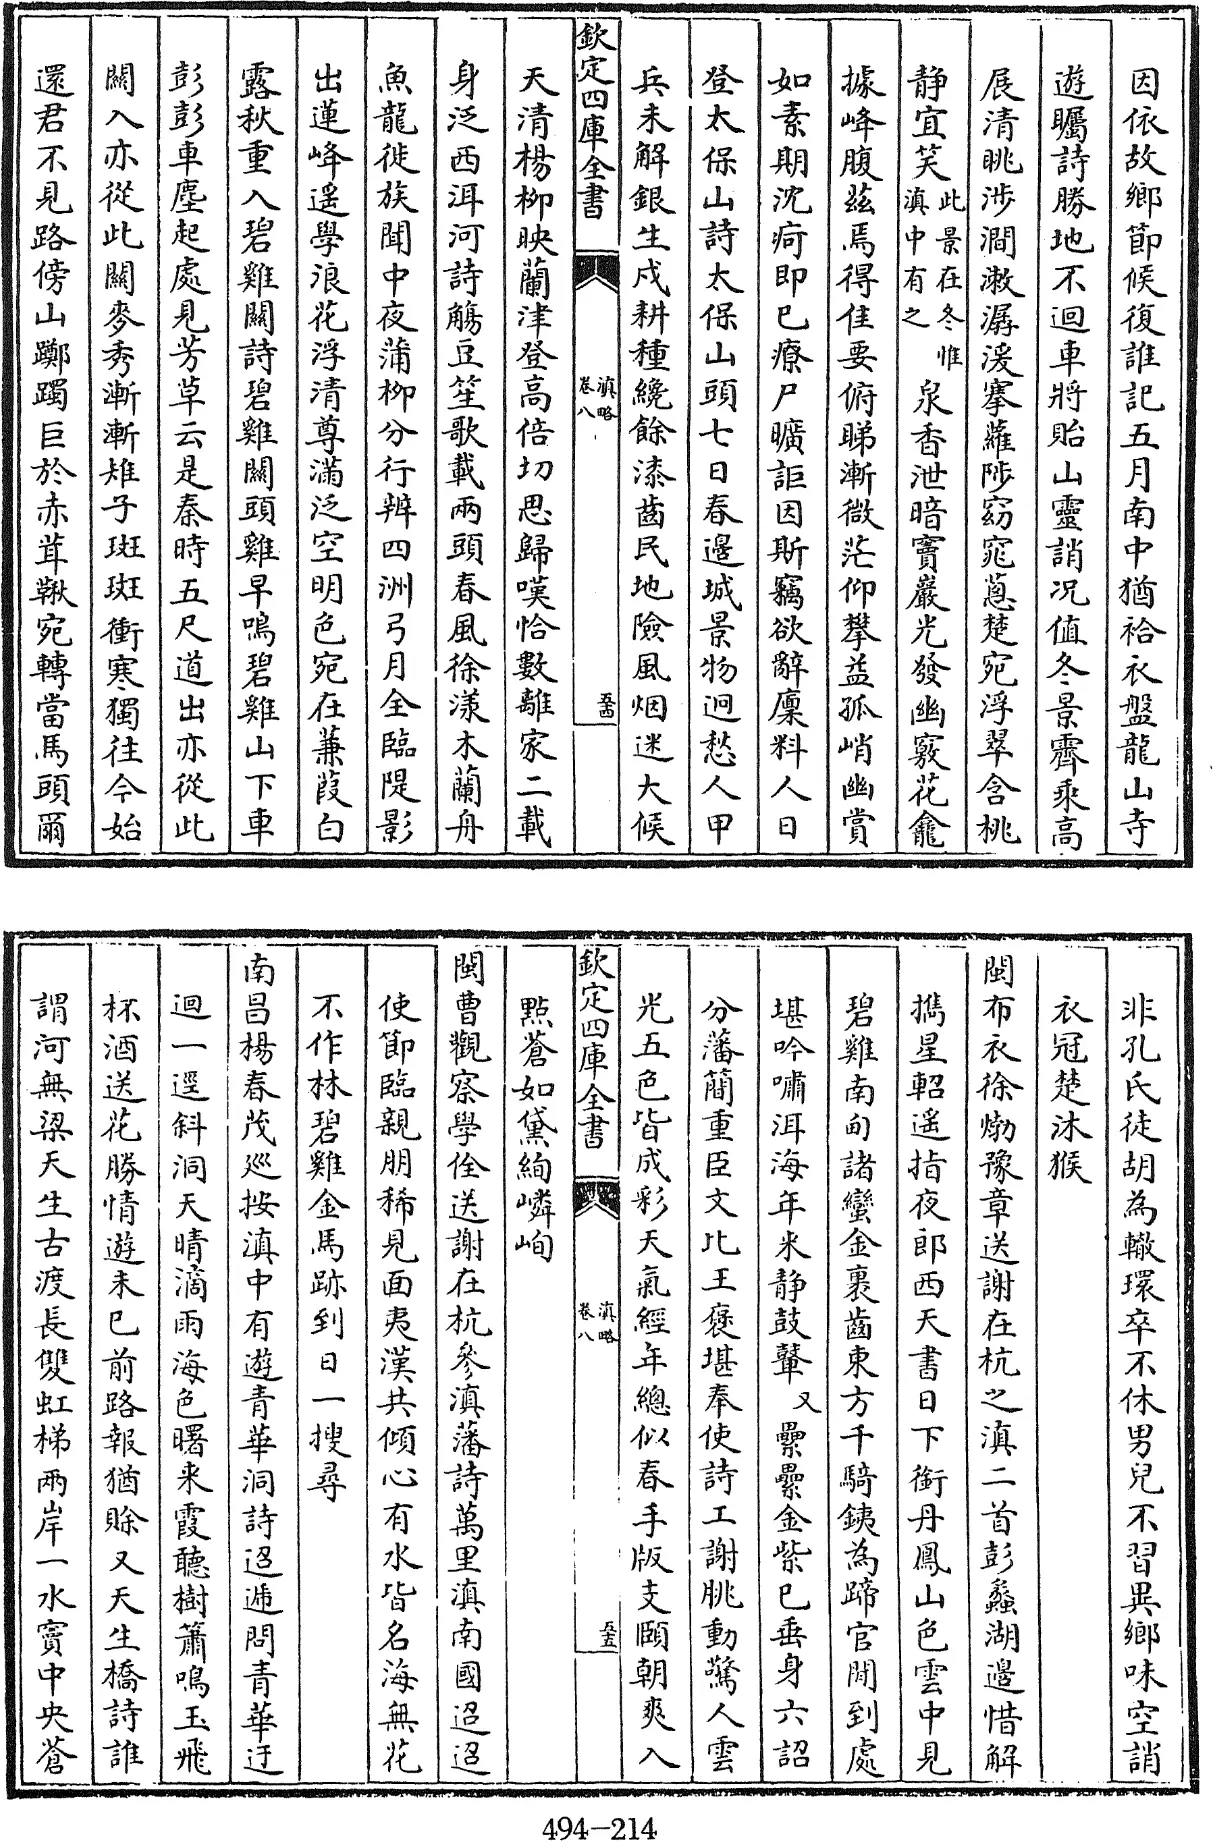 因依故鄉節候復誰記五月南中猶袷衣盤龍山寺
遊矚詩勝地不迴車將貽山靈誚况值冬景霽乘高
展清眺涉澗漱潺湲搴蘿陟窈窕蔥楚宛浮翠含桃
静宜笑此景在冬惟滇中有之泉香泄暗竇巖光發幽竅花龕
據峰腹兹焉得佳要俯睇漸微茫仰攀益孤峭幽賞
如素期沈疴即已療尸曠詎因斯竊欲辭廩料人日
登太保山詩太保山頭七日春邊城景物迥愁人甲
兵未解銀生戍耕種纔餘漆齒民地險風烟迷大候
欽定四庫全書
滇略
卷八
五十四
天清楊柳映蘭津登高倍切思歸嘆恰數離家二載
身泛西洱河詩觴豆笙歌載兩頭春風徐漾木蘭舟
魚龍徙族聞中夜蒲柳分行辨四洲弓月全臨隄影
出蓮峰遥學浪花浮清尊滿泛空明色宛在蒹葭白
露秋重入碧雞關詩碧雞關頭雞早鳴碧雞山下車
彭彭車塵起處見芳草云是秦時五尺道出亦從此
關入亦從此關麥秀漸漸雉子斑斑衝寒獨往今始
還君不見路傍山躑躅巨於赤茸鞦宛轉當馬頭爾
非孔氏徒胡為轍環卒不休男兒不習異鄉味空誚
衣冠楚沐猴
閩布衣徐𤊹豫章送謝在杭之滇二首彭蠡湖邉惜解
携星軺遥指夜郎西天書日下銜丹鳳山色雲中見
碧雞南甸諸蠻金裹齒東方千騎銕為蹄官閒到處
堪吟嘯洱海年來静鼓鼙又纍纍金紫已垂身六詔
分藩簡重臣文比王褒堪奉使詩工謝朓動驚人雲
光五色皆成彩天氣經年總似春手版支頤朝爽入
欽定四庫全書
滇略
卷八
五十五
點蒼如黛絢嶙峋
閩曹觀察學佺送謝在杭參滇藩詩萬里滇南國迢迢
使節臨親朋稀見面夷漢共傾心有水皆名海無花
不作林碧雞金馬跡到日一搜尋
南昌楊春茂廵按滇中有遊青華洞詩迢遞問青華迂
迴一逕斜洞天晴滴雨海色曙來霞聽樹簫鳴玉飛
杯酒送花勝情遊未已前路報猶賖又天生橋詩誰
謂河無梁天生古渡長雙虹梯兩岸一水竇中央蒼
494-214